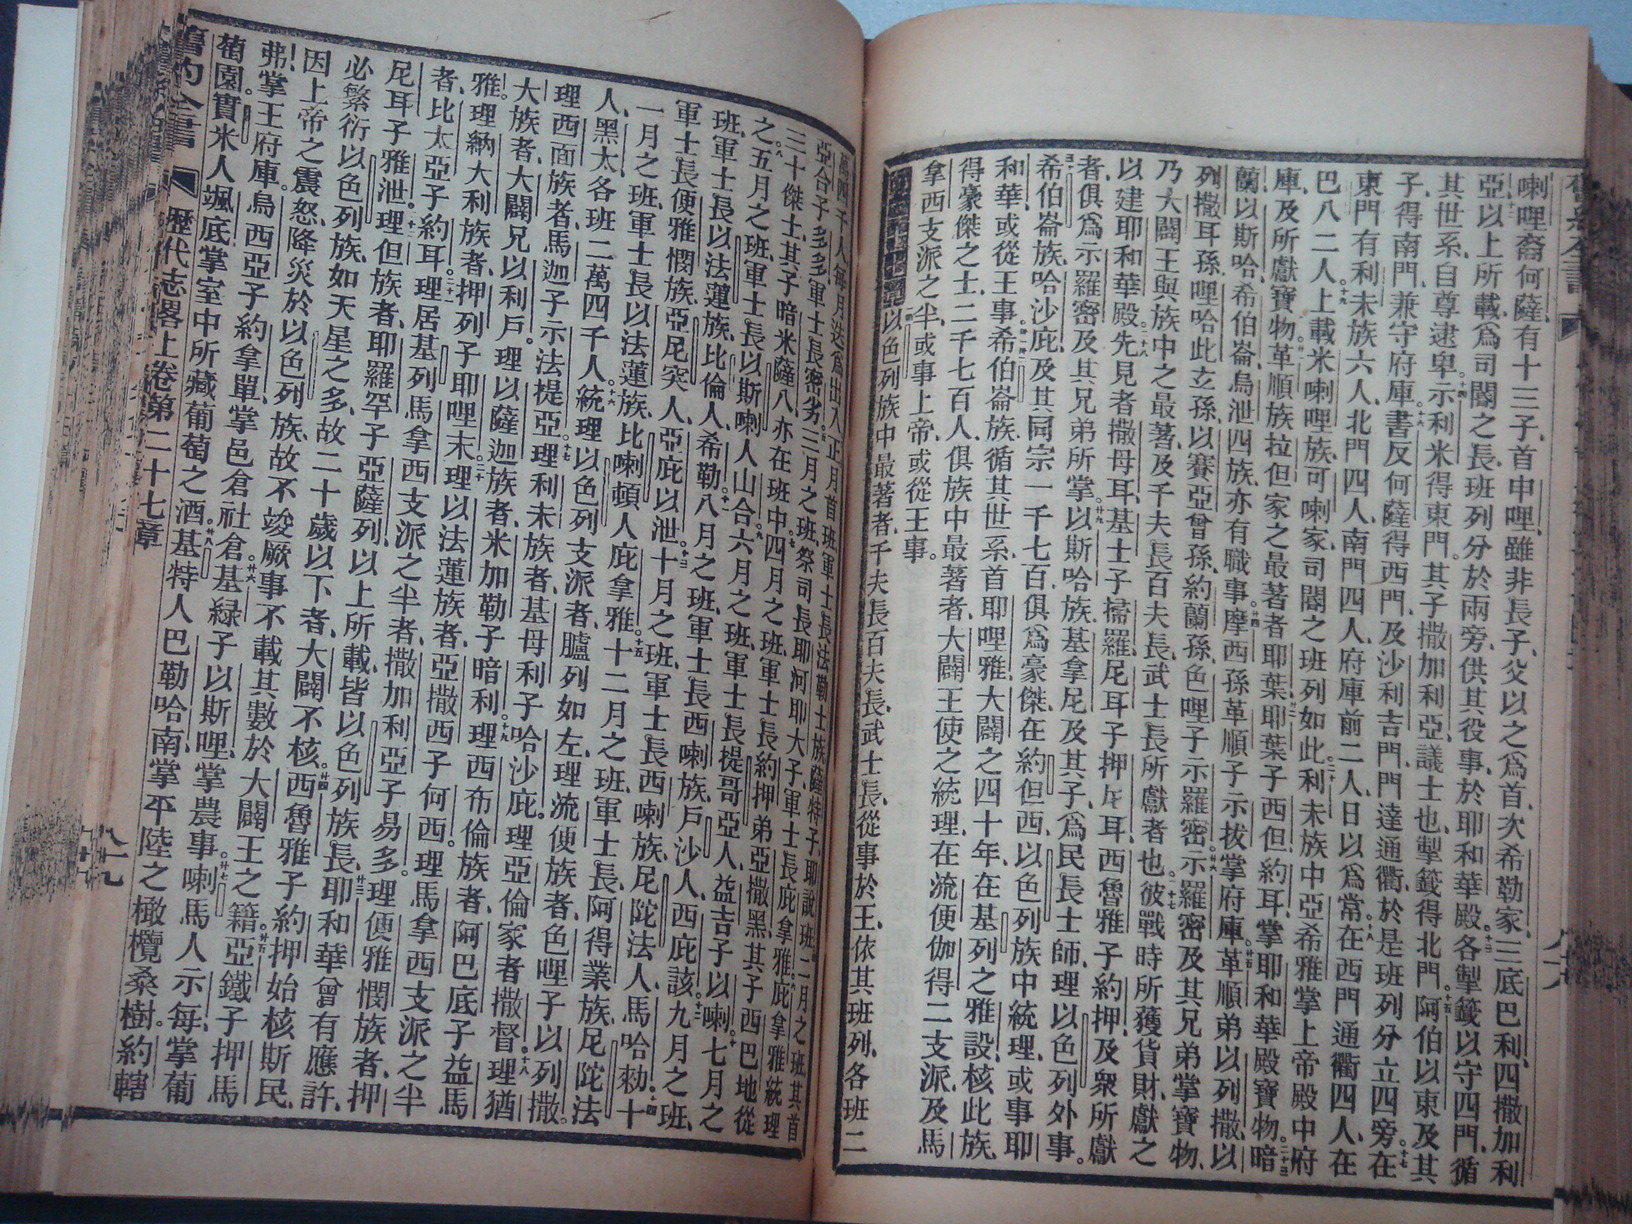 喇哩裔何薩、有十三子、首申哩、雖非長子、父以之爲首、次希勒家、三底巴利、四撒加利
亞、以上所載、爲司閽之長、班列分於兩旁、供其役事、於耶和華殿、各掣籤以守四門、循
其世系、自尊逮卑、示利米得東門、其子撒加利亞議士也、掣籤得北門、阿伯以東及其
子、得南門、兼守府庫、書反何薩得西門、及沙利吉門、門達通衢、於是班列分立四旁、在
東門有利未族六人、北門四人、南門四人、府庫前二人、日以爲常、在西門通衢四人、在
巴八二人、上載米喇哩族、可喇家、司閽之班列如此、利未族中、亞希雅掌上帝殿中府
庫、及所獻寶物、革順族拉但家之最著者、耶葉、耶葉子西但、約耳、掌耶和華殿寶物、暗
蘭、以斯哈、希伯崙、烏泄四族、亦有職事、摩西孫革順子示拔、掌府庫、革順弟以列撒、以
列撒耳孫哩哈此立孫、以賽亞曾孫、約蘭孫、色哩子示羅密、示羅密及其兄弟掌寶物、
乃大闢王與族中之最著、及千夫長百夫長武士長所獻者也、彼戰時所獲貨財、獻之
以建耶和華殿、先見者撒母耳、基士子掃羅、尼耳子押尼耳、西魯雅子約押、及衆所獻
者、俱爲示羅密及其兄弟所掌、以斯哈族、基拿尼及其子、爲民長士師、理以色列外事、
希伯崙族、哈沙庇、及其同宗、一千七百、俱爲豪傑、在約但西、以色列族中統理、或事耶
和華、或從王事、希伯崙族、循其世系、首耶哩雅、大闢之四十年、在基列之雅設、核此族、
得豪傑之士、二千七百人、俱族中最著者、大闢王使之統理、在流便伽得二支派、及馬
拿西支派之半、或事上帝、或從王事。
以色列族中最著者、千夫長、百夫長、武士長、從事於王、依其班列、各班二
萬四千人、每月迭爲出入、正月首班軍士長法勒士族薩特子耶說班、二月之班、其首
亞合子多多、軍士長密劣、三月之班、祭司長耶河耶大子、軍士長庇拿雅、庇拿雅統理
三十傑士、其子暗米薩八亦在班中、四月之班、軍士長約押弟亞撒黑、其子西巴地從
之、五月之班、軍士長以斯喇人山合、六月之班、軍士長提哥亞人、益吉子以喇、七月之
班、軍士長以法蓮族、比倫人希勒、八月之班、軍士長西喇族、戶沙人、西庇該、九月之班、
軍士長便雅憫族、亞尼突人、亞庇以泄、十月之班、軍士長西喇族、尼陀法人、馬哈勑、十
一月之班、軍士長以法蓮族、比喇頓人庇拿雅、十二月之班、軍士長阿得業族、尼陀法
人、黑太、各班二萬四千人、統理以色列支派者、臚列如左、理流便族者、色哩子以列撒、
理西面族者、馬迦子示法提亞、理利未族者、基母利子哈沙庇、理亞倫家者、撒督、理猶
大族者、大闢兄以利戶、理以薩迦族者、米加勒子暗利、理西布倫族者、阿巴底子益馬
雅、理納大利族者、押列子耶哩末、理以法蓮族者、亞撒西子何西、理馬拿西支派之半
者、比太亞子約耳、理居基列馬拿西支派之半者、撒加利亞子易多、理便雅憫族者、押
尼耳子雅泄、理但族者、耶羅罕子亞薩列、以上所載、皆以色列族長、耶和華曾有應許、
必繁衍以色列族、如天星之多、故二十歲以下者、大闢不核、西魯雅子約押始核斯民、
因上帝之震怒、降災於以色列族、故不竣厥事、不載其數於大闢王之籍、亞鐵子押馬
弗、掌王府庫、烏西亞子約拿單、掌邑倉社倉、基綠子以斯哩、掌農事、喇馬人示每、掌葡
萄園、實米人颯底、掌室中所藏葡萄之酒、基特人巴勒哈南、掌平陸之橄欖桑樹、約轄
舊約全書
歷代志畧上卷第二十七章